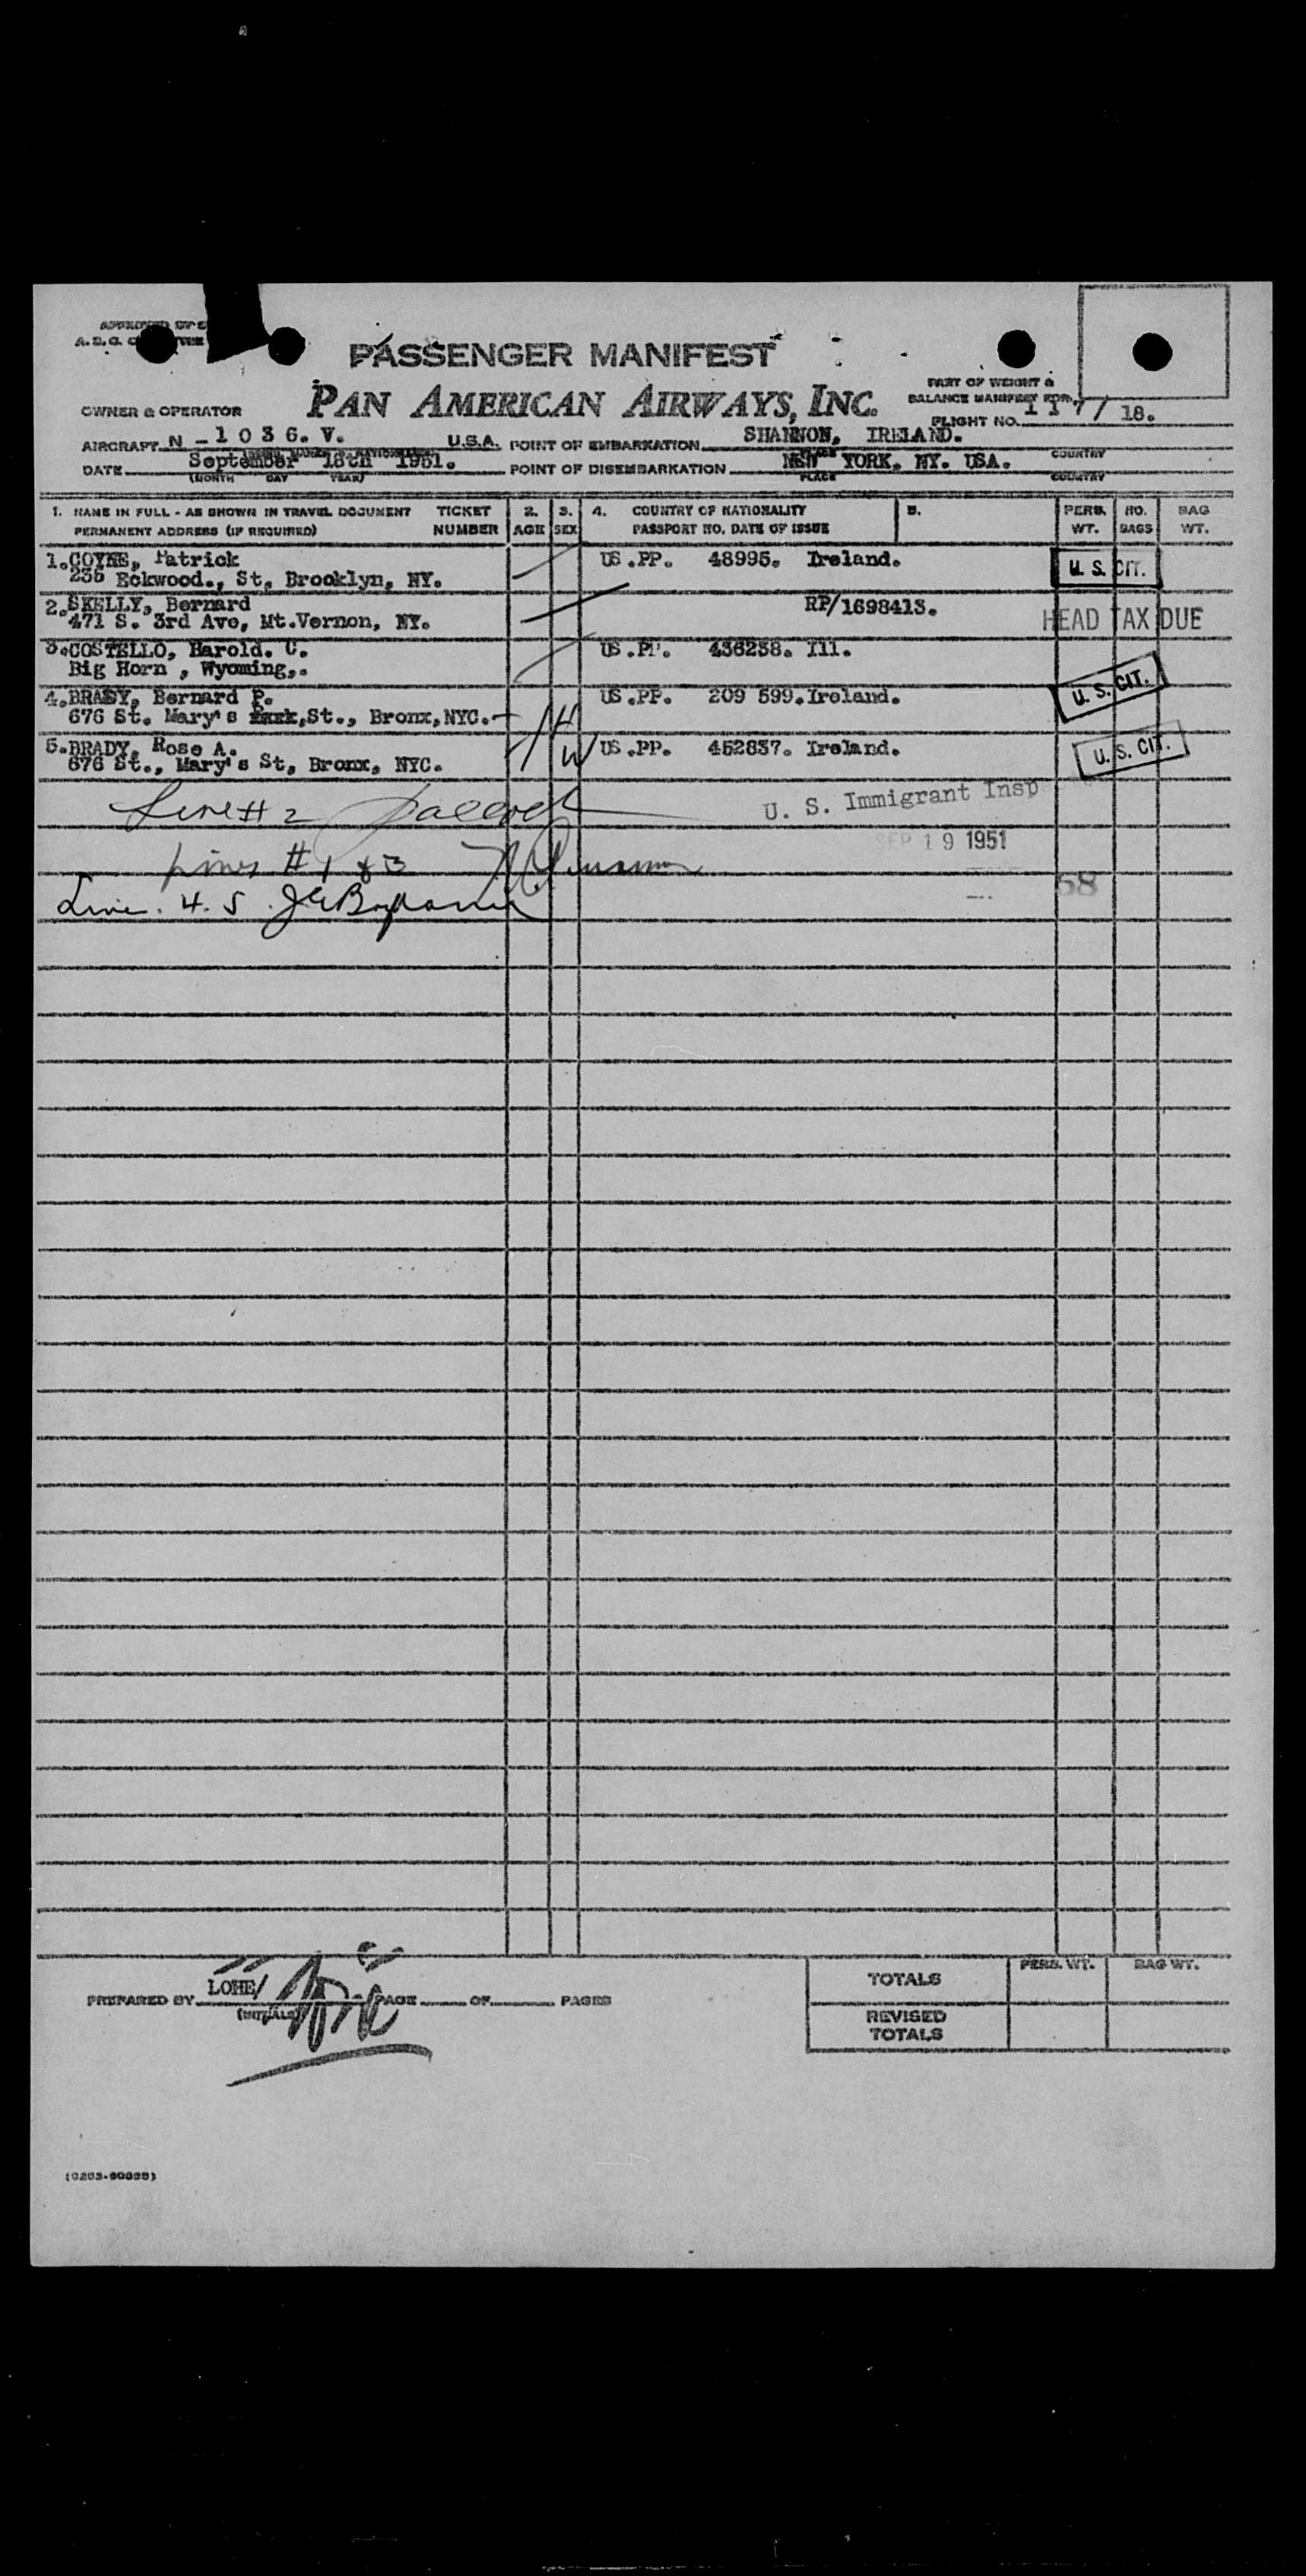 PASSENGER MANIFEST
PAN AMERICAN AIRWAYS, INC.
PART OF WEIGHT &
BALANCE MANIFEST FOR
OWNER & OPERATOR
FLIGHT NO. 117/18.
AIRCRAFT N - 1 0 3 6. V. U.S.A. POINT OF EMBARKATION SHANNON, IRELAND.
PLACE COUNTRY
DATE September 18th 1951. POINT OF DISEMBARKATION NEW YORK, NY. USA.
(MONTH DAY YEAR) PLACE COUNTRY
1. NAME IN FULL - AS SHOWN IN TRAVEL DOCUMENT TICKET 2. 3. 4. COUNTRY OF NATIONALITY 5. PERS. NO. BAG
PERMANENT ADDRESS (IF REQUIRED) NUMBER AGE SEX PASSPORT NO. DATE OF ISSUE WT. BAGS WT.
1. COYNE, Patrick US.PP. 48995. Ireland. U. S. CIT.
235 Eckwood., St, Brooklyn, NY.
2. SKELLY, Bernard RP/1698413.
471 S. 3rd Ave, Mt.Vernon, NY. HEAD TAX DUE
3. COSTELLO, Harold. C. US.PP. 436238. Ill.
Big Horn , Wyoming,.
4. BRADY, Bernard P. US.PP. 209 599. Ireland. U. S. CIT.
676 St. Mary's St., Bronx, NYC. H
5. BRADY, Rose A. W US.PP. 452837. Ireland. U. S. CIT.
676 St., Mary's St, Bronx, NYC.
Line # 2 U. S. Immigrant Insp
SEP 19 1951
Lines # 1 & 3
58
Line. 4. 5.
PREPARED BY LOHE/ PAGE OF PAGES
(INITIALS)
TOTALS PERS. WT. BAG WT.
REVISED
TOTALS